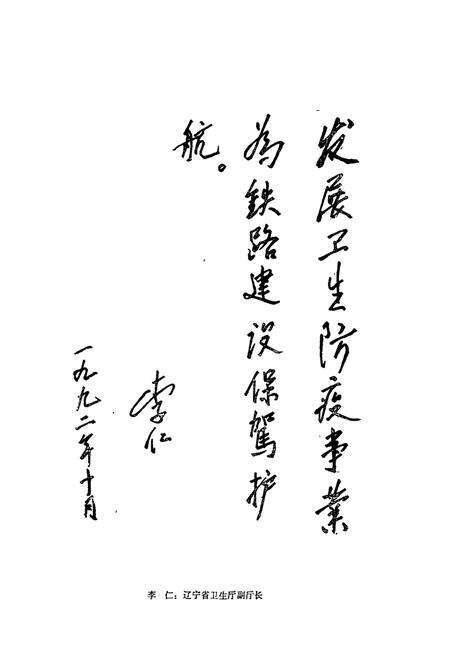 发展卫生防疫事业
为铁路建设保驾护
航。
李仁
一九九二年十月
李 仁：辽宁省卫生厅副厅长